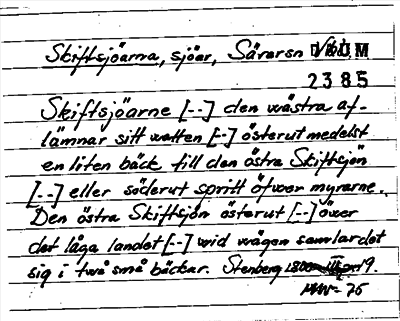 Skiftsjöarna, sjöar, Särarsn
DAUM
2385
Skiftsjöarne [--] den wästra af-
lämnar sitt watten [--] österut medelst
en liten bäck till den östra Skiftsjön
[--] eller söderut spritt öfwer myrarne.
Den östra Skiftsjön österut [--] över
det låga landet [--] wid wägen samlar det
sig i twå små bäckar. Stenberg 19.